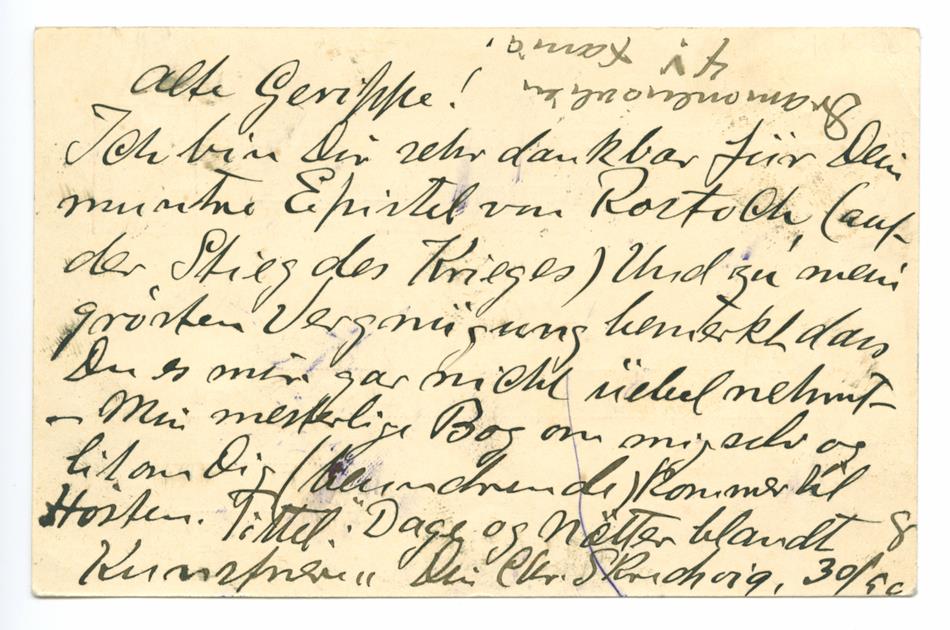 Alte Gerippe!
Ich bin Dir sehr dankbar für Dein
muntre Epistel von Rostoch, (auf
der Stieg des Krieges) Und zu mein
grösten Vergnügung bemerkt dass
Du es mir gar nicht üebel nehmt
– Min mesterlige Bog om mig selv og
lit om Dig (beundrende) Kommer til
Hösten. Tittel: "Dage og Nætter blandt
Kunstnere" Din Chr. Skredsvig, 30/